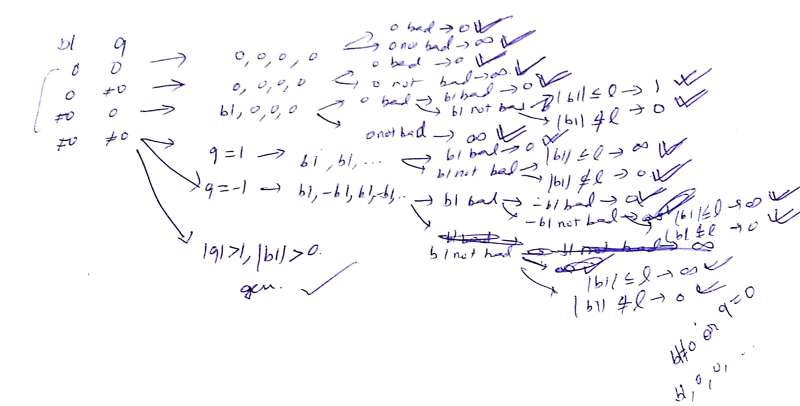 b1 q
0 0 → 0, 0, 0, 0 → 0 bad → 0 ✓
→ 0 not bad → ∞ ✓
0 ≠0 → 0, 0, 0, 0 → 0 bad → 0 ✓
→ 0 not bad → ∞ ✓
≠0 0 → b1, 0, 0, 0 → 0 bad → b1 bad → 0 ✓
→ b1 not bad → |b1| ≤ l → 1 ✓
→ |b1| ≰ l → 0 ✓
→ 0 not bad → ∞ ✓
≠0 ≠0
→ q = 1 → b1, b1, ... → b1 bad → 0 ✓
→ b1 not bad → |b1| ≤ l → ∞ ✓
→ |b1| ≰ l → 0 ✓
→ q = -1 → b1, -b1, b1, -b1, .. → b1 bad → -b1 bad → 0 ✓
→ -b1 not bad → |b1| ≤ l → ∞ ✓
|b1 ≰ l → 0 ✓
→ b1 not bad
→ |b1| ≤ l → ∞ ✓
→ |b1| ≰ l → 0 ✓
→ |q| > 1, |b1| > 0.
gen. ✓
b1≠0 or q=0
b1, 0, 0, ...